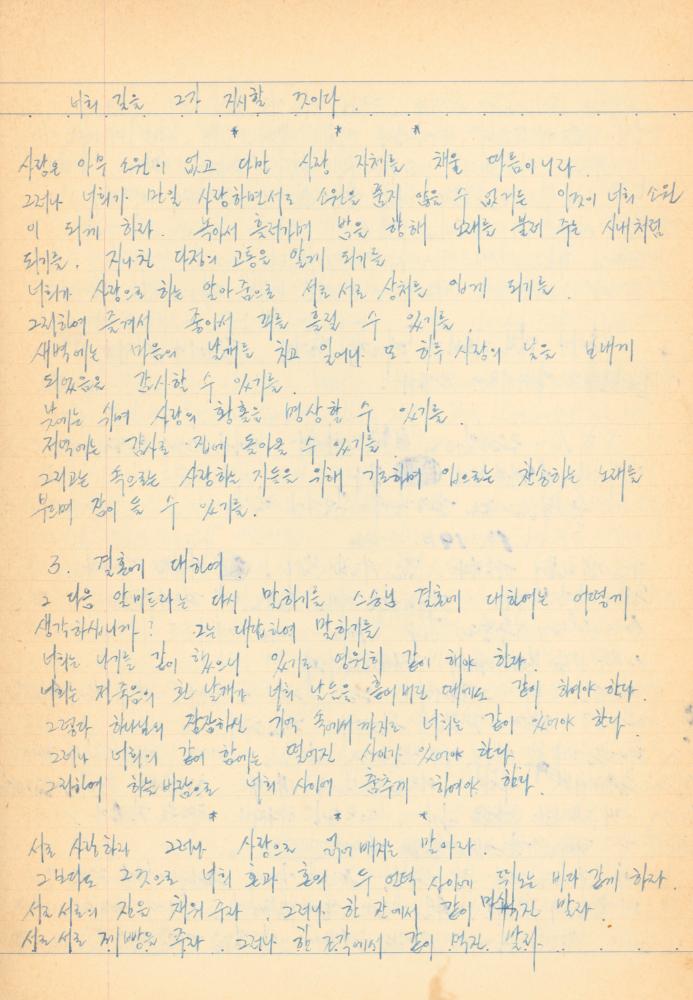 너희 길을 그가 지시할 것이다.
* * *
사랑은 아무 소원이 없고 다만 사랑 자체를 채울 따름이니라.
그러나 너희가 만일 사랑하면서도 소원을 품지 않을 수 없거든 이것이 너희 소원
이 되게 하라. 녹아서 흘러가며 밤을 향해 노래를 불러 주는 시내처럼
되기를. 지나친 다정의 고통을 알게 되기를
너희가 사랑으로 하는 알아줌으로 서로 서로 상처를 입게 되기를.
그리하여 즐겨서 좋아서 피를 흘릴 수 있기를.
새벽에는 마음의 날개를 치고 일어나 또 하루 사랑의 날을 보내게
되었음을 감사할 수 있기를.
낮에는 쉬며 사랑의 황홀을 명상할 수 있기를.
저녁에는 감사로 집에 돌아올 수 있기를
그리고는 속으로는 사랑하는 자들을 위해 기도하며 입으로는 찬송하는 노래를
부르며 잠이 들 수 있기를.
3. 결혼에 대하여.
그 다음 알미트라는 다시 말하기를 스승님 결혼에 대하여는 어떻게
생각하십니까? 그는 대답하여 말하기를
너희는 나기를 같이 했으니 있기도 영원히 같이 해야 한다.
너희는 저 죽음의 흰 날개가 너희 날들을 흩어버린 때에도 같이 하여야 한다.
그렇다 하나님의 잠잠하신 기억 속에서까지도 너희는 같이 있어야 한다.
그러나 너희의 같이 함에는 떨어진 사이가 있어야 한다.
그리하여 하늘 바람으로 너희 사이에 춤추게 하여야 한다.
* * *
서로 사랑하라 그러나 사랑으로 얽어 매지는 말아라.
그보다도 그것으로 너희 혼과 혼의 두 언덕 사이에 뛰노는 바다 같게 하라.
서로 서로의 잔을 채워 주라. 그러나 한 잔에서 같이 마시진 말라.
서로 서로 제 빵을 주라. 그러나 한 조각에서 같이 먹진 말라.